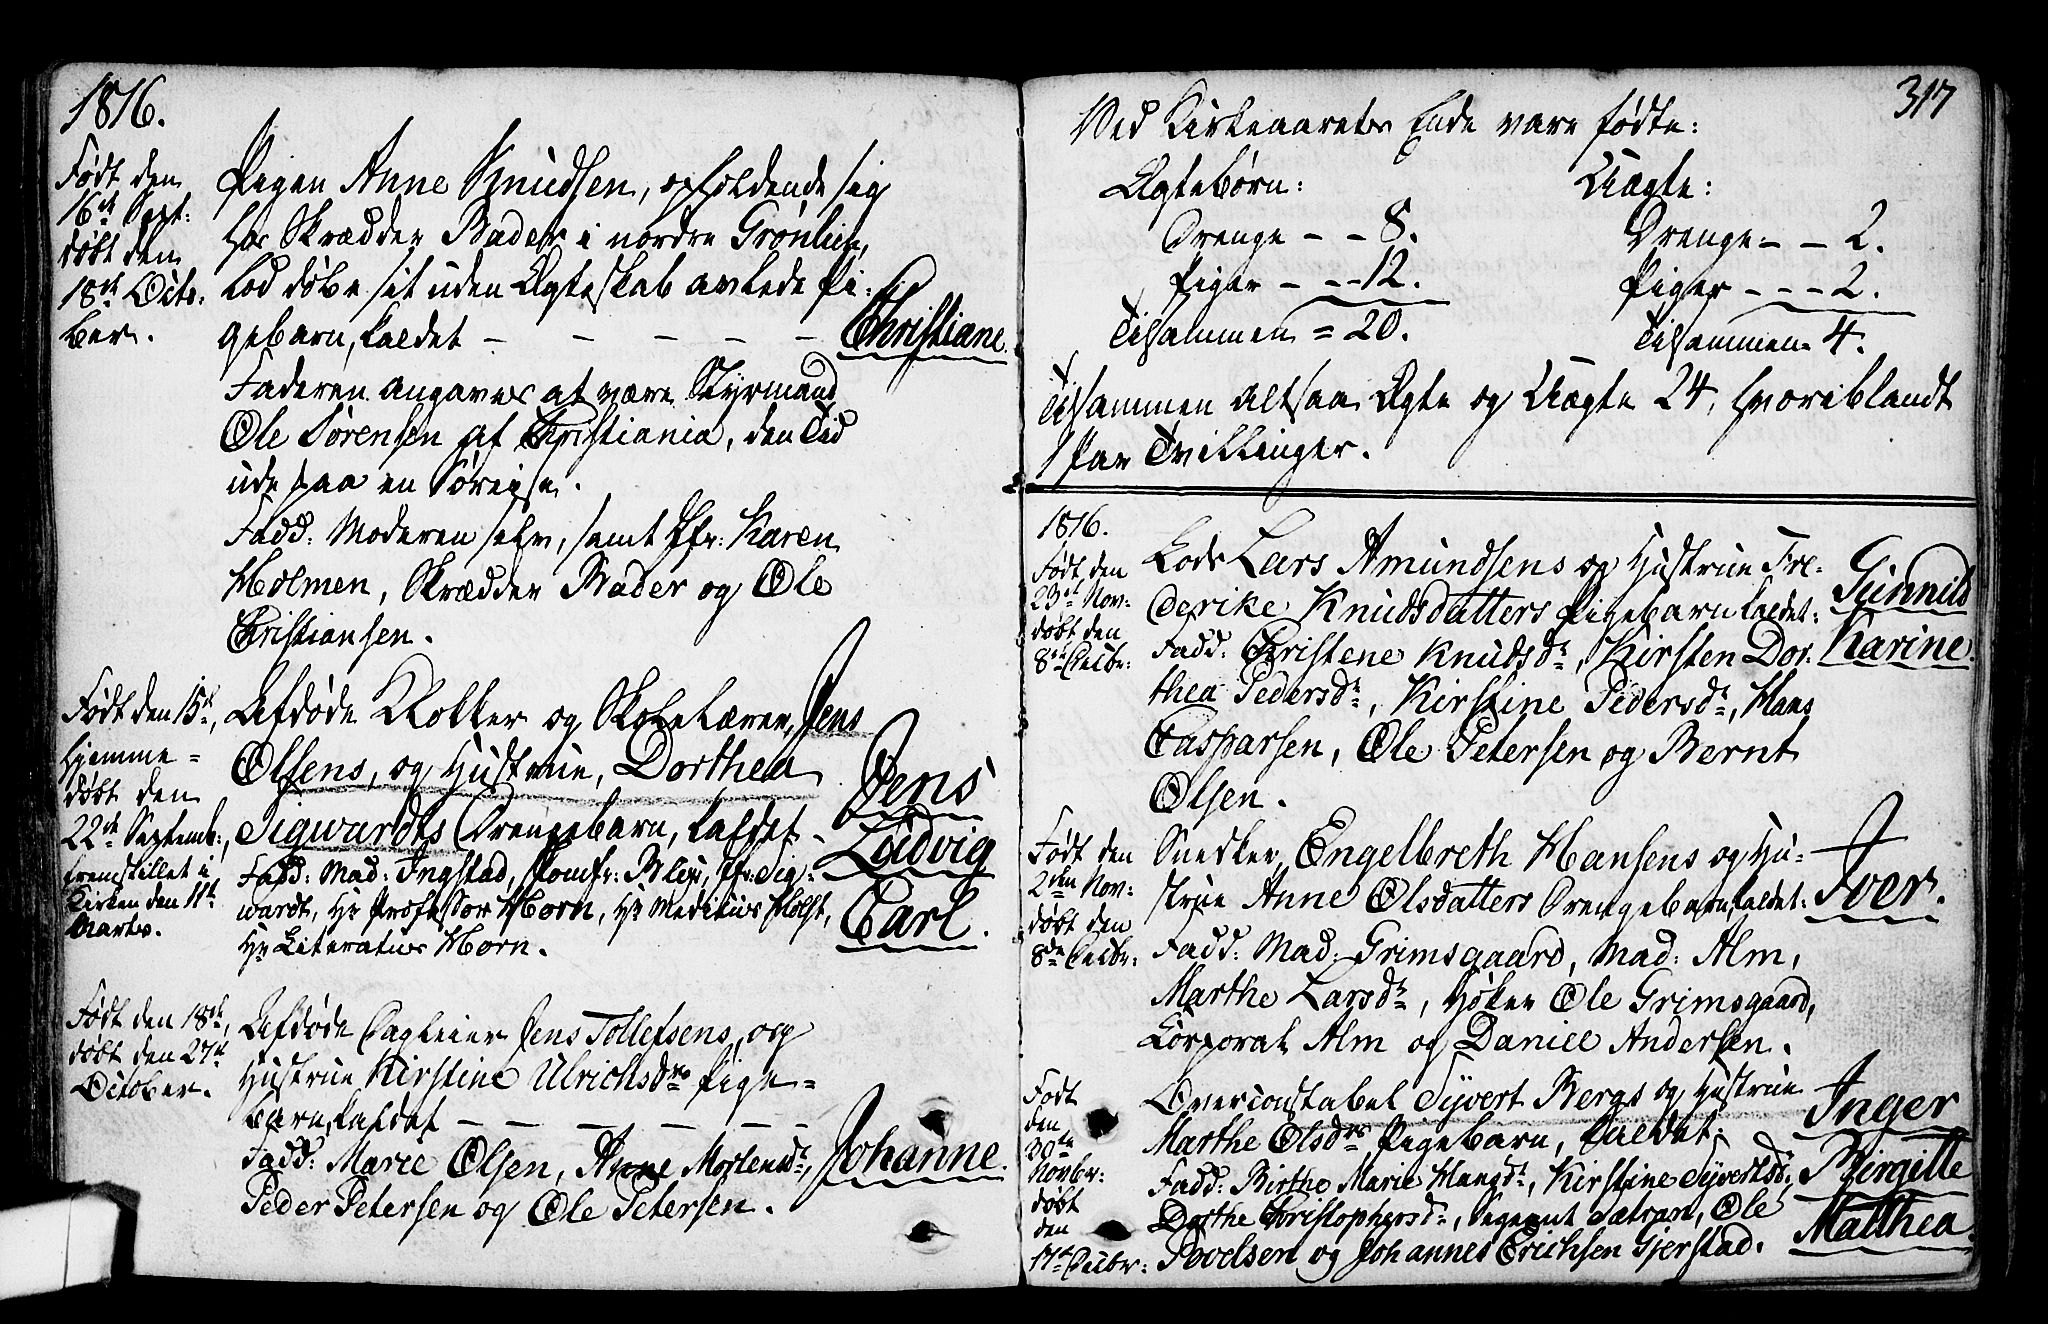 1816.
Født den
16de Sept:
døbt den
18de Octo-
ber.
Pigen Anne Knudsen, opholdende sig
hos Skrædder Bader i nordre Grønlien,
lod døbe sit uden Ægteskab avlede Pi-
gebarn, kaldet - - - - - Christiane.
Faderen angaves at være Styrmand
Ole Sørensen af Christiania, den Tid
ude paa en Søreise.
Fadd: Moderen selv, samt Jfr: Karen
Holmen, Skrædder Bader og Ole
Christiansen.
Født den 15de,
hjemme=
døbt den
22de Septemb:,
fremstillet i
Kirken den 11te
Martz.
Afdøde Klokker og Skolelærer, Jens
Olsens, og Hustrue, Dorthea
Sigwardts Drengebarn, kaldet -
Jens
Ludvig
Carl.
Fadd: Mad: Ingstad, Jomfr: , Jfr: Sig:
wardt, Hr Professor Horn, Hr Medicus Holst,
Hr Literatus Horn.
Født den 18de,
døbt den 27de
October.
Afdøde Dagleier Jens Tollefsens, og
Hustrue Kirstine Ulrichsdrs Pige=
barn, kaldet - - - - - -
Johanne.
Fadd: Marie Olsen, Anne Mortensdr,
Peder Petersen og Ole Petersen.
317
Ved Kirkeaarets Ende vare fødte:
Ægtebørn: Uægte:
Drenge - - 8. Drenge - - 2.
Piger - - - 12. Piger - - - 2.
Tilsammen = 20. Tilsammen = 4.
Tilsammen altsaa Ægte og Uægte 24, hvoriblandt
1 Par Tvillinger.
1816.
Født den
23de Nov:
døbt den
8de Decbr:
Lods Lars Amundsens og Hustrue Fre-
derike Knudsdatters Pigebarn kaldet:
Gunnild
Karine.
Fadd: Christene Knudsdr, Kirsten Dor:
thea Pedersdr, Kirstine Pedersdr, Hans
Casparsen, Ole Petersen og Bernt
Olsen.
Født den
2den Nov:
døbt den
8de Decbr:
Snedker Engelbreth Hansens og Hu=
strue Anne Olsdatters Drengebarn, kaldet:
Iver.
Fadd: Mad: Grimsgaard, Mad: Alm,
Marthe Larsdr, Høker Ole Grimsgaard,
Corporal Alm og Daniel Andersen.
Født
den
30te
Novbr:
døbt
den
17de Decbr:
Overconstabel Syvert Bergs og Hustrue
Marthe Olsdrs Pigebarn, kaldet:
Inger
Birgitte
Malthea.
Fadd: Birthe Marie Hansdr, Kirstine Syvertsdr,
Dorthe Christophersdr, Sergeant Sætran, Ole
Povelsen og Johannes Erichsen Gjerstad.